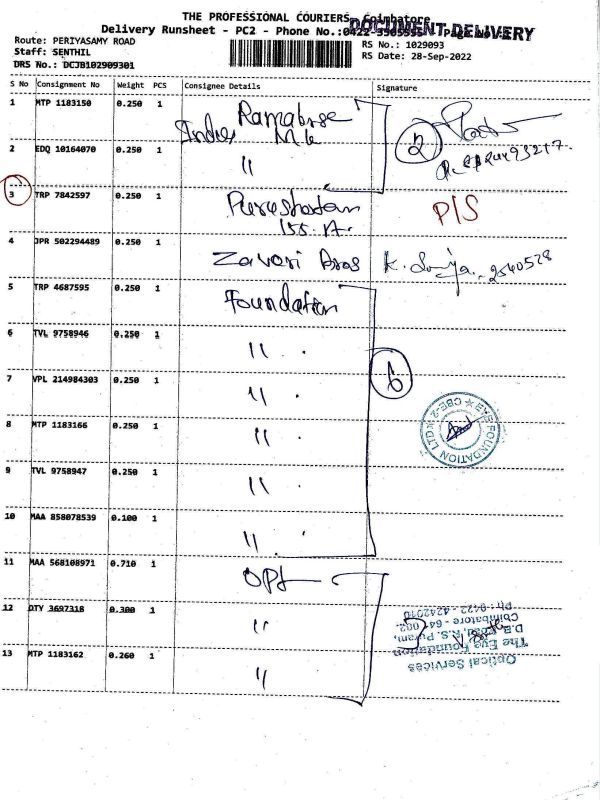 THE PROFESSIONAL COURIERS, Coimbatore
DOCUMENT DELIVERY
Delivery Runsheet - PC2 - Phone No.:0422
Route: PERIYASAMY ROAD
RS No.: 1029093
Staff: SENTHIL
RS Date: 28-Sep-2022
DRS No.: DCJB102909301
S No Consignment No Weight PCS Consignee Details Signature
1 MTP 1183150 0.250 1
2 EDQ 10164070 0.250 1 "
2
3 TRP 7842597 0.250 1
155. A. P/S
4 JPR 502294489 0.250 1 Zaveri Bros 2540528
5 TRP 4687595 0.250 1 Foundation
6 TVL 9758946 0.250 1 "
7 VPL 214984303 0.250 1 "
6
8 MTP 1183166 0.250 1 "
EYE FOUNDATION LTD ★ CBE-2 ★
9 TVL 9758947 0.250 1 "
10 MAA 858078539 0.100 1 "
11 MAA 568108971 0.710 1 Opt
12 DTY 3697318 0.300 1 "
13 MTP 1183162 0.260 1 "
Optical Services
The Eye Foundation
D.B. Road, R.S. Puram,
Coimbatore - 641 002.
Ph : 0422 - 4242010